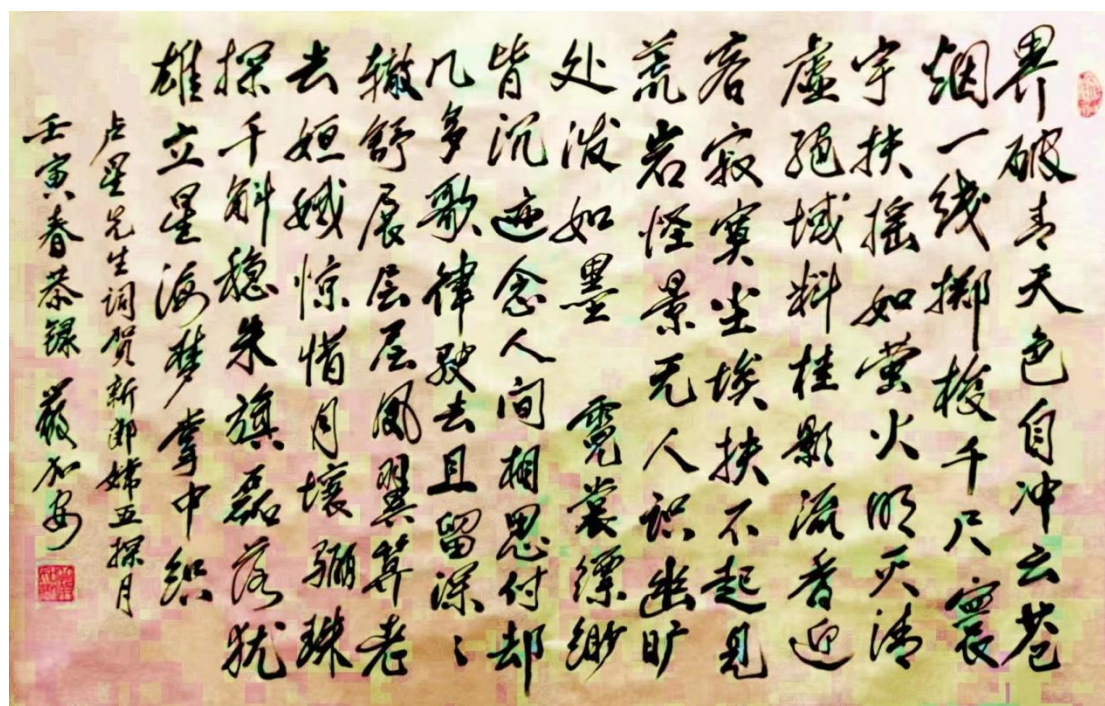 界破青天色自冲云苍
烟一线掷梭千尺寰
宇扶摇如萤火明灭清
虚绝域料桂影流香迎
客寂寞尘埃扶不起见
荒岩怪景无人识幽旷
处泼如墨 霓裳缥缈
皆沉迹念人间相思付却
几多歌律驶去且留深〻
辙舒展层层凤翼算老
去姮娥惊惜月壤骊珠
探千斛稳朱旗磊落犹
雄立星海梦掌中织
星先生词贺新郎嫦五探月
壬寅春恭録 嚴加安